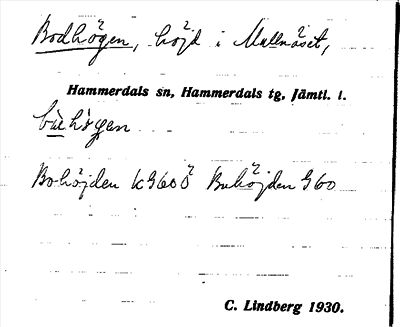 Bodhögen, höjd i Mullnäset,
Hammerdals sn, Hammerdals tg, Jämtl. l.
Bohöjden kG60ö Buhöjden G60
C. Lindberg 1930.